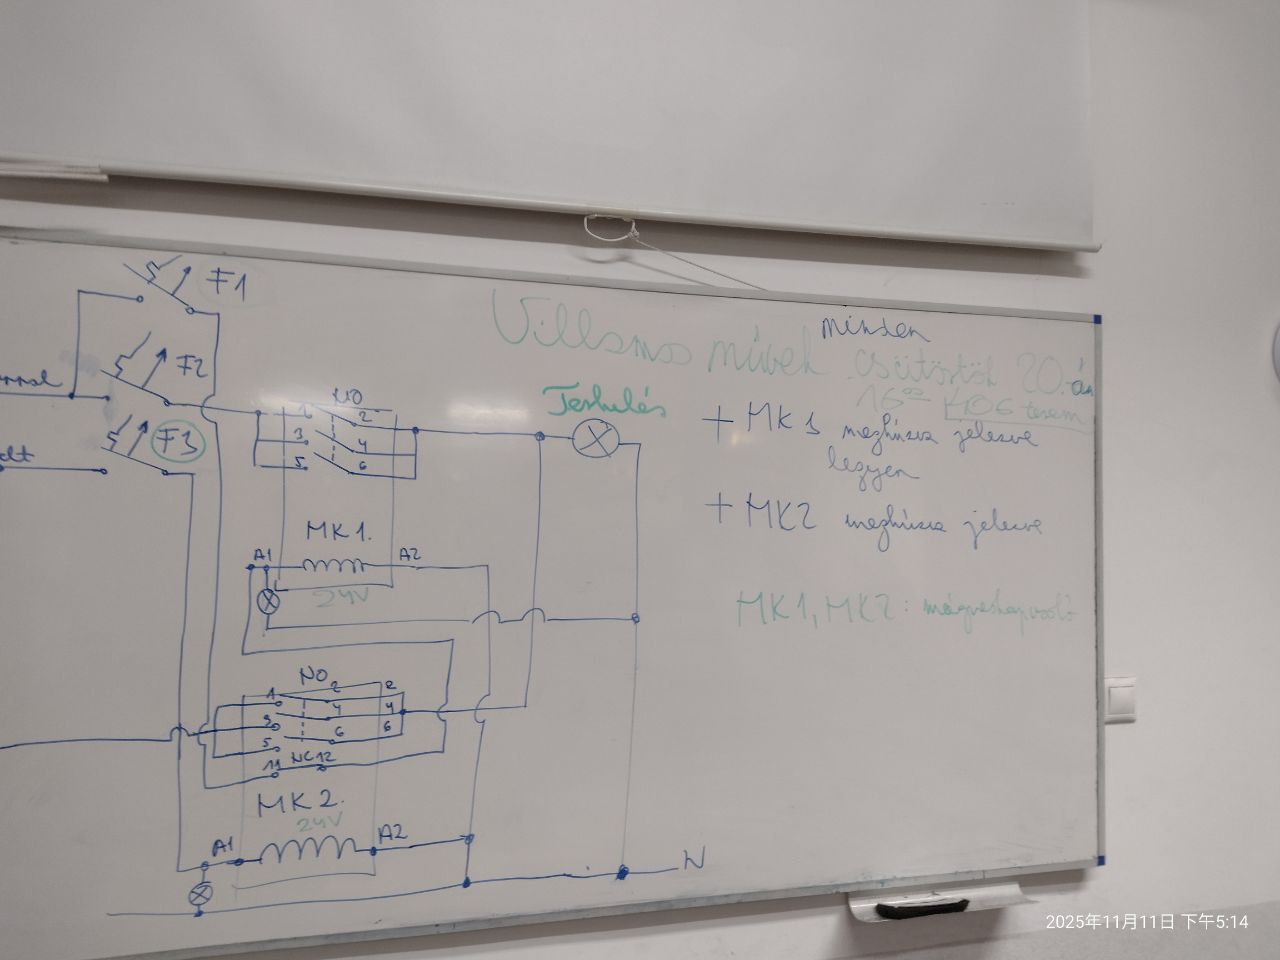 F1
F2
F3
NO
1 2
3 4
5 6
MK1.
A1 A2
24V
NO
1 2 2
3 4 4
5 6 6
11 NC 12
MK2.
24V
A1 A2
N
Terhelés
Villamos művek minden csütörtök 20.-án
16⁰⁰ K106 terem
+ MK1 meghúzva jelezve
legyen
+ MK2 meghúzva jelezve
MK1, MK2: mágneskapcsoló
2025年11月11日 下午5:14